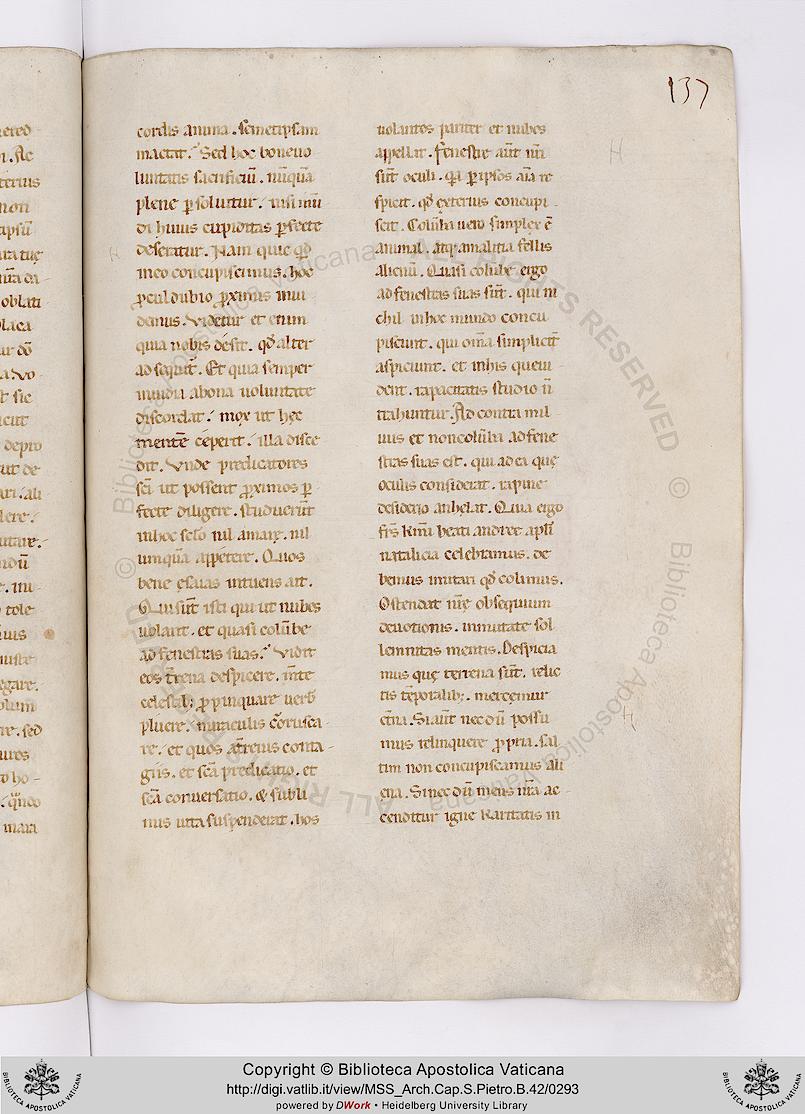 137
cordis anima . semetipsam
mactat. Sed hoc bonevo
luntatis sacrificiū . nūquā
plene ꝑsoluitur . nisi mū
di huius cupiditas ꝑfecte
deseratur . Nam quic qd̄
ineo concupiscimus . hoc
ꝓcul dubio ꝓximis inui
demus . Videtur et enim
quia nobis desit . qd̄ alter
adsequit̄ . Et quia semper
inuidia abona uoluntate
discordat . mox ut hęc
mentē ceperit . illa disce
dit . Vnde predicatores
sc̄i ut possent ꝓximos ꝑ
fecte diligere . studuerūt
inhoc sc̄lo nil amare . nil
umquā appetere . Quos
bene esaias intuens ait .
Qui sūt isti qui ut nubes
uolant . et quasi colūbe
ad fenestras suas . Vidit
eos t̄rena despicere . m̄te
celestib; ꝓpinquare uerb̄
pluere . miraculis corusca
re . et quos at̄renis conta
giis . et sc̄a predicatio . et
sc̄a conuersatio . & subli
mis uita suspenderat . hos
uolantes pariter et nubes
appellat . Fenestre aūt nr̄i
sūt oculi . qa ꝑipsos aīa re
spicit . qd̄ exterius concupi
scit . Colūba uero simplex ē
animal . atq; amalitia fellis
alienū . Quasi colūbe ergo
ad fenestras suas sūt . qui ni
chil inhoc mundo concu
piscunt . qui om̄a simplicit̄
aspiciunt . et inhis que ui
dent . rapacitatis studio n̄
trahuntur . Ad contra mil
uus et non colūba ad fene
stras suas est . qui ad ea quę
oculis considerat . rapine
desiderio anhelat . Quia ergo
fr̄s km̄i beati andree apl̄i
natalicia celebramus . de
bemus imitari qd̄ colimus .
Ostendat m̄tę obsequium
deuotionis . inmutate sol
lemnitas mentis . Despicia
mus quę terrena sūt . relic
tis tēporalib; mercemur
et̄na . Si aūt nec dū possu
mus relinquere ꝓpria . sal
tim non concupiscamus ali
ena . Si nec dū mens nr̄a ac
cenditur igne karitatis in
Copyright © Biblioteca Apostolica Vaticana
http://digi.vatlib.it/view/MSS_Arch.Cap.S.Pietro.B.42/0293
powered by DWork • Heidelberg University Library